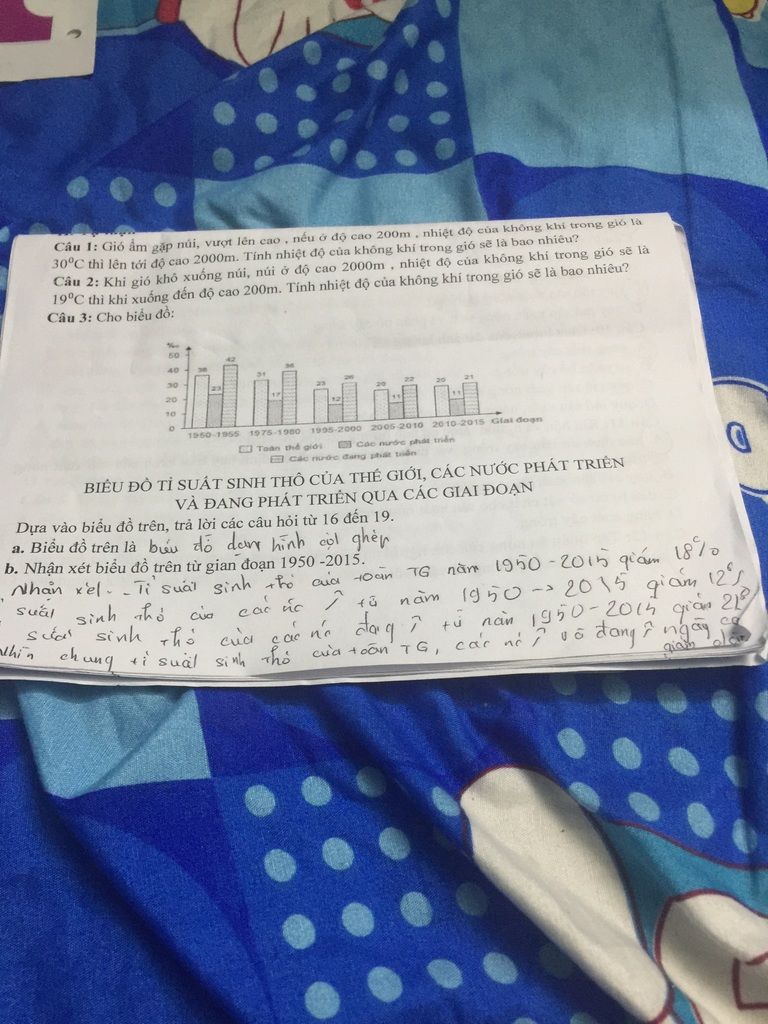 Câu 1: Gió ẩm gặp núi, vượt lên cao , nếu ở độ cao 200m , nhiệt độ của không khí trong gió là
30⁰C thì lên tới độ cao 2000m. Tính nhiệt độ của không khí trong gió sẽ là bao nhiêu?
Câu 2: Khi gió khô xuống núi, núi ở độ cao 2000m , nhiệt độ của không khí trong gió sẽ là
19⁰C thì khi xuống đến độ cao 200m. Tính nhiệt độ của không khí trong gió sẽ là bao nhiêu?
Câu 3: Cho biểu đồ:
‰
50
40
30
20
10
0
36 23 42
31 17 36
23 12 26
20 11 22
20 11 21
1950-1955 1975-1980 1995-2000 2005-2010 2010-2015 Giai đoạn
Toàn thế giới Các nước phát triển
Các nước đang phát triển
BIỂU ĐỒ TỈ SUẤT SINH THÔ CỦA THẾ GIỚI, CÁC NƯỚC PHÁT TRIỂN
VÀ ĐANG PHÁT TRIỂN QUA CÁC GIAI ĐOẠN
Dựa vào biểu đồ trên, trả lời các câu hỏi từ 16 đến 19.
a. Biểu đồ trên là biểu đồ dạng hình cột ghép
b. Nhận xét biểu đồ trên từ gian đoạn 1950 -2015.
Nhận xét - Tỉ suất sinh thô của toàn TG năm 1950 - 2015 giảm 18%
suất sinh thô của các nc ↑ từ năm 1950 -> 2015 giảm 12%
suất sinh thô của các nc đang ↑ từ năm 1950 - 2015 giảm 21%
Nhìn chung tỉ suất sinh thô của toàn TG, các nc ↑ và đang ↑ ngày cg
giảm dần